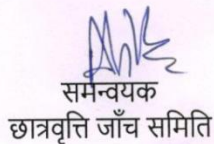 समन्वयक
छात्रवृत्ति जाँच समिति